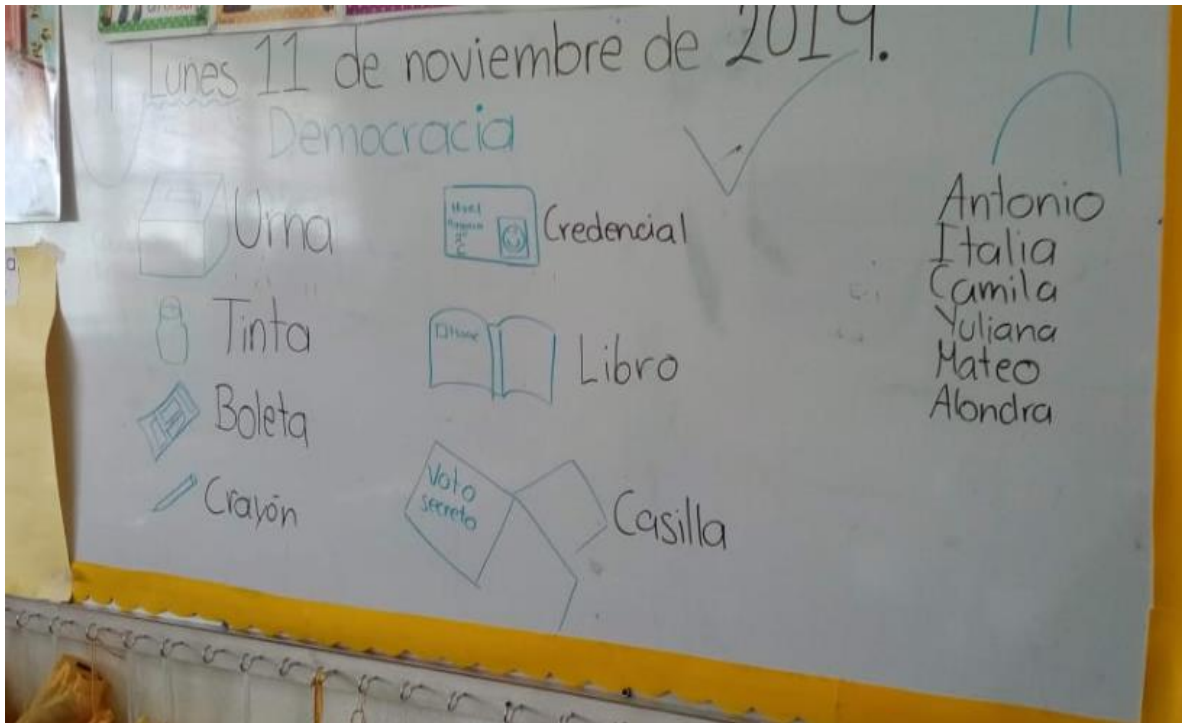 Lunes 11 de noviembre de 2019.
Democracia
Urna
Tinta
Boleta
Crayón
Credencial
Libro
Voto
secreto
Casilla
Antonio
Italia
Camila
Yuliana
Mateo
Alondra